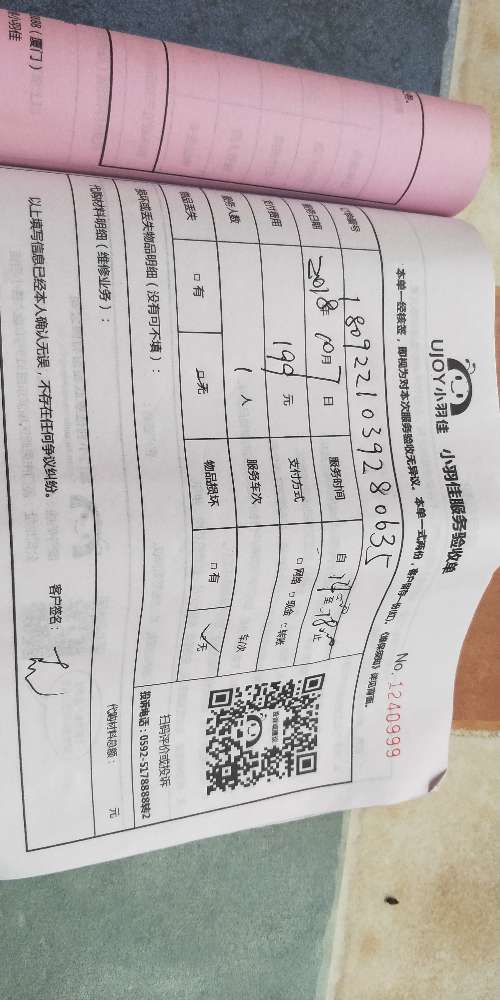 UJOY小羽佳 小羽佳服务验收单
No. 1240999
本单一经接签，即视为对本次服务验收无异议。本单一式两份，
订单编号 1809221039280635
服务日期 2018年10月7日 服务时间 自 14:00 至 18:00 止
支付费用 199元 支付方式 □ 网络 □ 现金 □ 转账
服务人数 1人 服务车次 车/次
物品丢失 □ 有 ☑ 无 物品损坏 □ 有 ☑ 无
损坏或丢失物品明细（没有可不填）：
扫码评价或投诉
投诉电话：0592-5178888转2
代购材料明细（维修业务）：
代购材料总额： 元
以上填写信息已经本人确认无误，不存在任何争议纠纷。
客户签名：
（厦门）
小羽佳